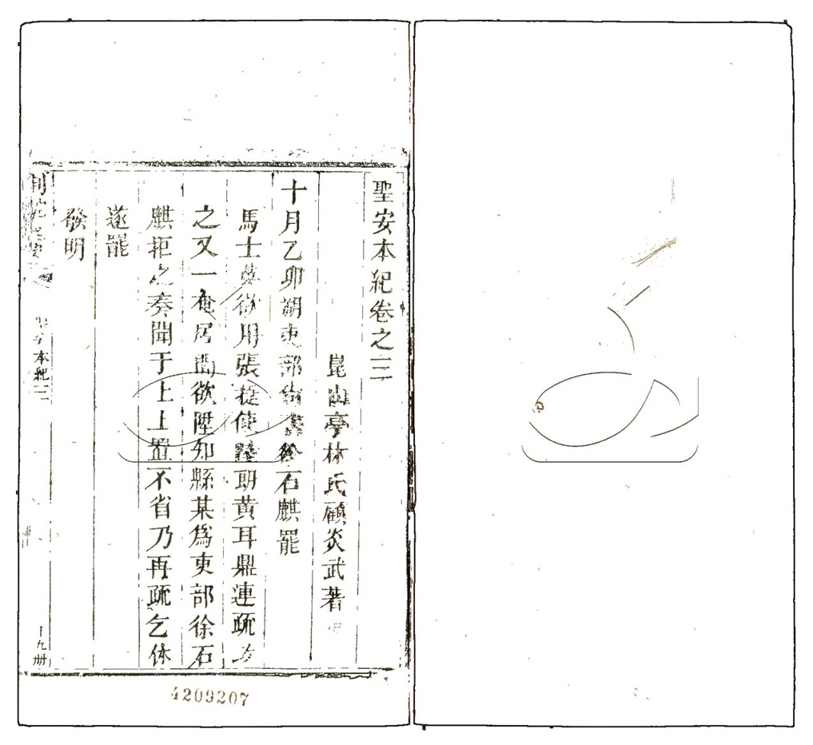 聖安本紀卷之二
崑山亭林氏顧炎武著
十月乙卯朔吏部尚書徐石麒罷
馬士英欲用張捷使陸朗黃耳鼎連疏
之又一奄居間欲陞知縣某爲吏部徐石
麒拒之奏聞于上上置不省乃再疏乞休
遂罷
發明
本紀二
十九册
4209207